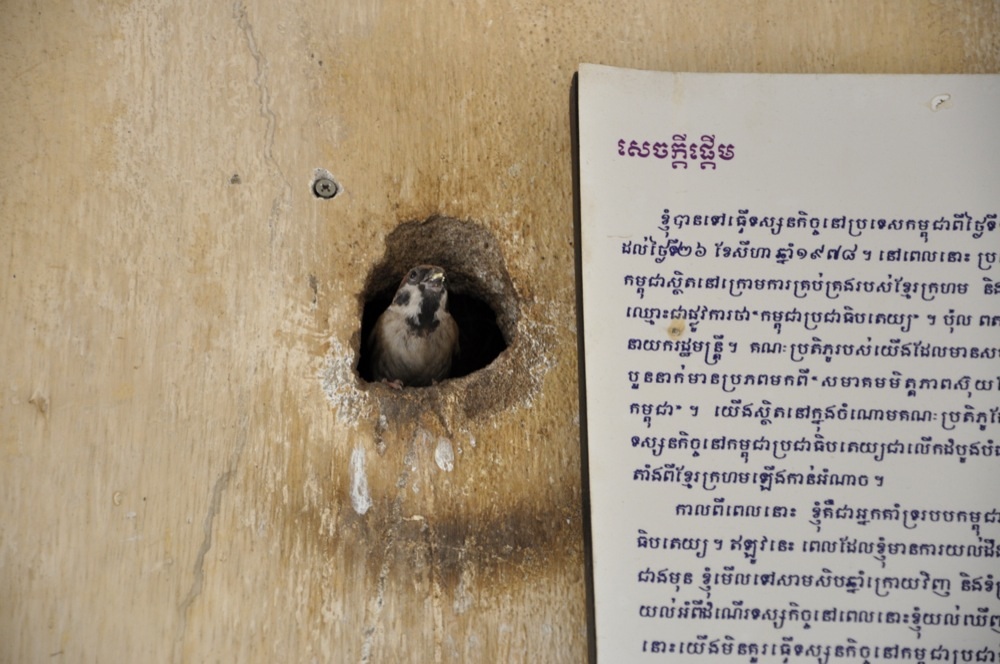 សេចក្ដីផ្ដើម
ខ្ញុំបានទៅធ្វើទស្សនកិច្ចនៅប្រទេសកម្ពុជាពីថ្ងៃទី
ដល់ថ្ងៃទី២៦ ខែសីហា ឆ្នាំ១៩៧៨ ។ នៅពេលនោះ
កម្ពុជាស្ថិតនៅក្រោមការគ្រប់គ្រងរបស់ខ្មែរក្រហម
ឈ្មោះជាផ្លូវការថា"កម្ពុជាប្រជាធិបតេយ្យ" ។ ប៉ុល ពត
នាយករដ្ឋមន្ត្រី។ គណៈប្រតិភូរបស់យើងដែលមាន
បួននាក់មានប្រភពមកពី"សមាគមមិត្តភាពស៊ុយ
កម្ពុជា" ។ យើងស្ថិតនៅក្នុងចំណោមគណៈប្រតិភូ
ទស្សនកិច្ចនៅកម្ពុជាប្រជាធិបតេយ្យជាលើកដំបូង
តាំងពីខ្មែរក្រហមឡើងកាន់អំណាច ។
កាលពីពេលនោះ ខ្ញុំគឺជាអ្នកគាំទ្ររបបកម្ពុជា
ធិបតេយ្យ ។ ឥឡូវនេះ ពេលដែលខ្ញុំមានការយល់ដឹង
ជាងមុន ខ្ញុំមើលទៅសាមសិបឆ្នាំក្រោយវិញ
យល់អំពីដំណើរទស្សកិច្ចនៅពេលនោះខ្ញុំយល់ឃើញ
នោះយើងមិនគួរធ្វើទស្សនកិច្ចនៅកម្ពុជា